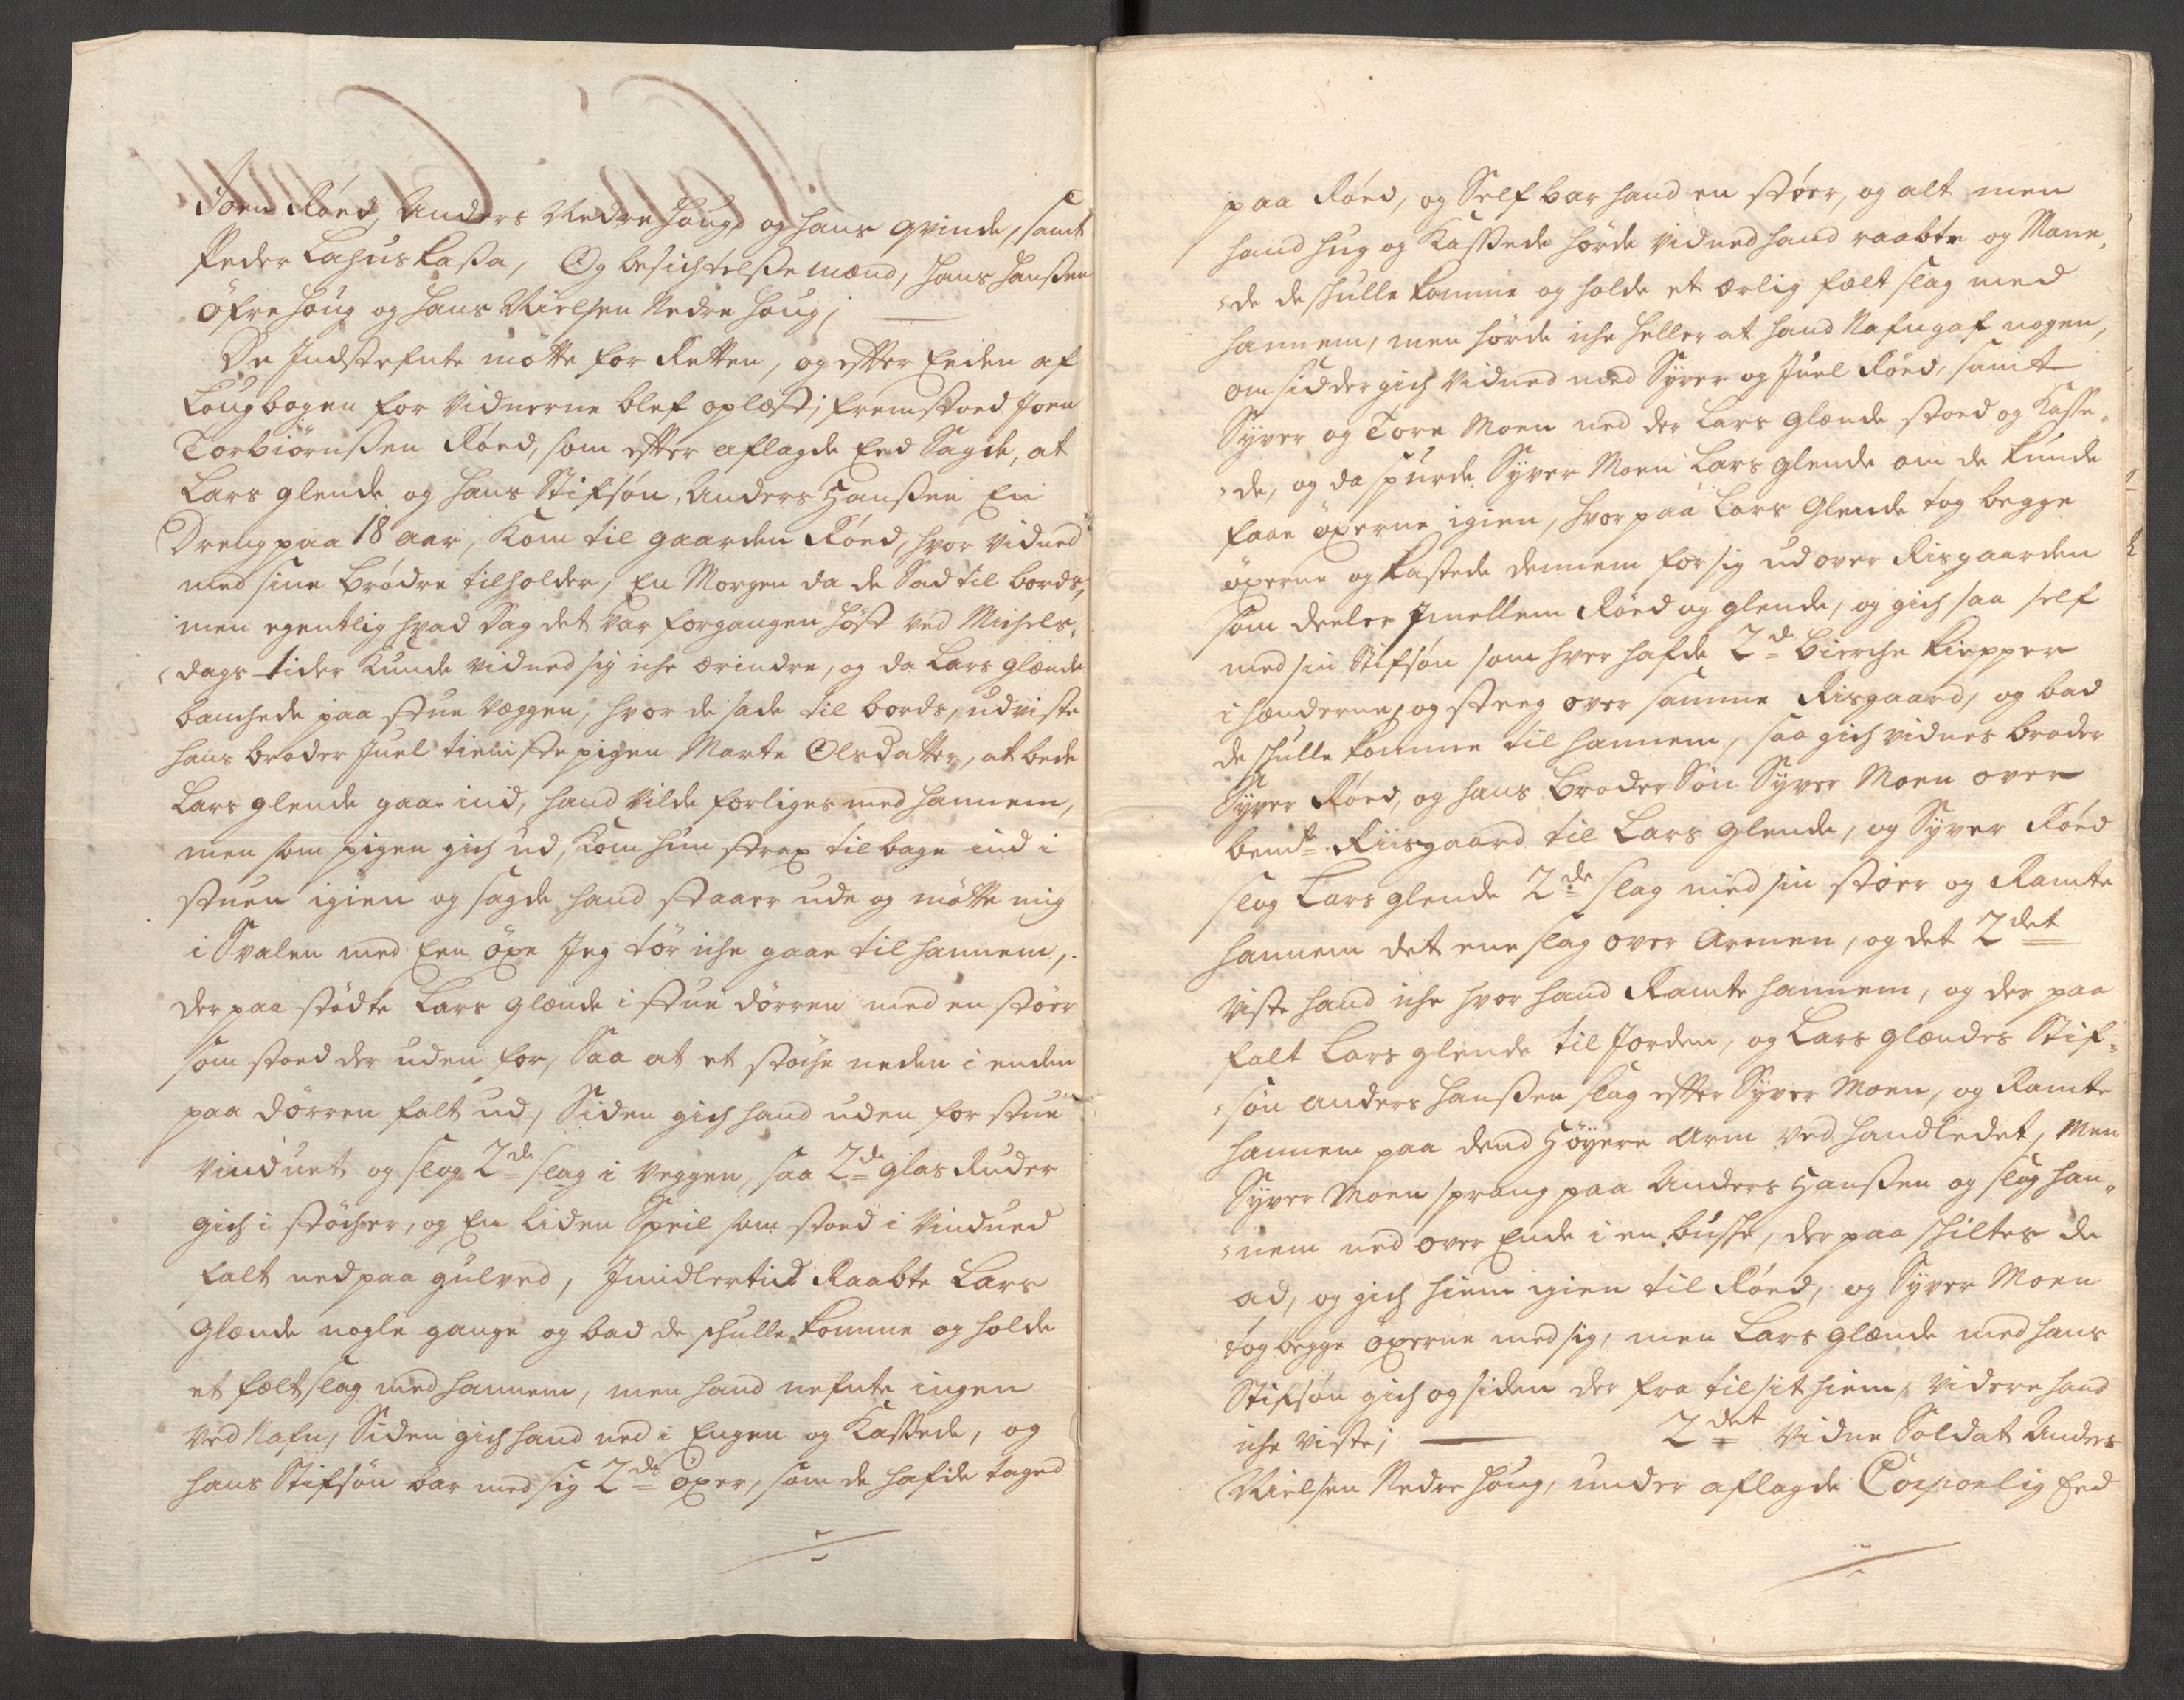 Joen Röed, Anders Nedre Houg og hans qvinde, samt
Peder Lahuskaßa, Og besichtelße mænd, Hans Hanßen
Öfre Houg og Hans Nielsen Nedre Houg;
De Indstefnte mötte for Retten, og efter Eeden af
Lougbogen for Vidnerne blef oplæst; fremstoed Joen
Torbiörnßen Röed, som efter aflagde Eed Sagde, at
Lars glende og hans Stifsön, Anders Hanßen En
Dreng paa 18 aar, Kom til gaarden Röed, hvor vidned
med sine brödre tilholder, En Morgen da de Sad til bords,
men egentlig hvad Dag det var forgangen Höst ved Michels,
dags tider Kunde vidned sig iche ærindre, og da Lars glænde
banchede paa stue væggen, hvor de sade til bords, udviste
hans broder Juel tieniste pigen Marte Olsdatter, at bede
Lars glende gaae ind, hand vilde forliges med hannem,
men som pigen gich ud, Kom hun strax tilbage ind i
stuen igien og sagde hand staaer ude og mötte mig
i Svalen med Een öxe Jeg tör iche gaae til hannem,
der paa stödte Lars glænde i stue dörren med en stöer
som stoed der uden for, Saa at et støche neden i enden
paa dörren falt ud, Siden gich hand uden for stue
vinduet og slog 2de slag i veggen, saa 2de glas Ruder
gich i stöcher, og En liden Speil som stoed i vindued
falt ned paa gulved, Imidlertid Raabte Lars
Glænde nogle gange og bad de schulle komme og holde
et fælt slag med hannem, men hand nefnte ingen
ved Nafn, Siden gich hand ned i Engen og Kastede, og
hans Stifsön bar med sig 2de öxer, som de hafde taged
paa Röed, og Self bar hand en stöer, og alt men
hand hug og Kastede hörde vidned hand raabte og Mane,
de de schulle komme og holde et ærlig fælt slag med
hannem, men hörde iche heller at hand Nafngaf nogen,
omsidder gich vidned med Syver og Juel Röed, samt
Syver og Tore Moen ned der Lars glænde stoed og Kaste,
de, og da spurde Syver Moen Lars glende om de kunde
faae öxerne igien, hvor paa Lars Glende tog begge
öxerne og kastede dennem for sig ud over Risgaarden
som deeler Imellem Röed og glende, og gich saa self
med sin Stifsön som hver hafde 2de bierche kiepper
i hænderne, og steeg over samme Risgaard, og bad
de schulle komme til hannem, saa gich vidnes broder
Syver Röed, og hans Broder Sön Syver Moen over
bemte Riisgaard til Lars glende, og Syver Röed
slog Lars glende 2de slag med sin stöer og Ramte
hannem det ene slag over Armen, og det 2det
viste hand iche hvor hand Ramte hannem, og der paa
falt Lars glende til Jorden, og Lars glændes Stif,
sön anders Hanßen slog efter Syver Moen, og Ramte
hannem paa dend Höyere Arm ved handledet, Men
Syver Moen sprang paa Anders Hanßen og slog han,
nem ned over Ende i en buske, der paa schiltes de
ad, og gich hiem igien til Röed, og Syver Moen
tog begge öxerne med sig, men Lars glænde med hans
Stifsön gich og siden der fra til sit hiem, videre hand
iche viste; 2det Vidne Soldat Anders
Nielsen Nedre Houg, under aflagde Corporlig Eed